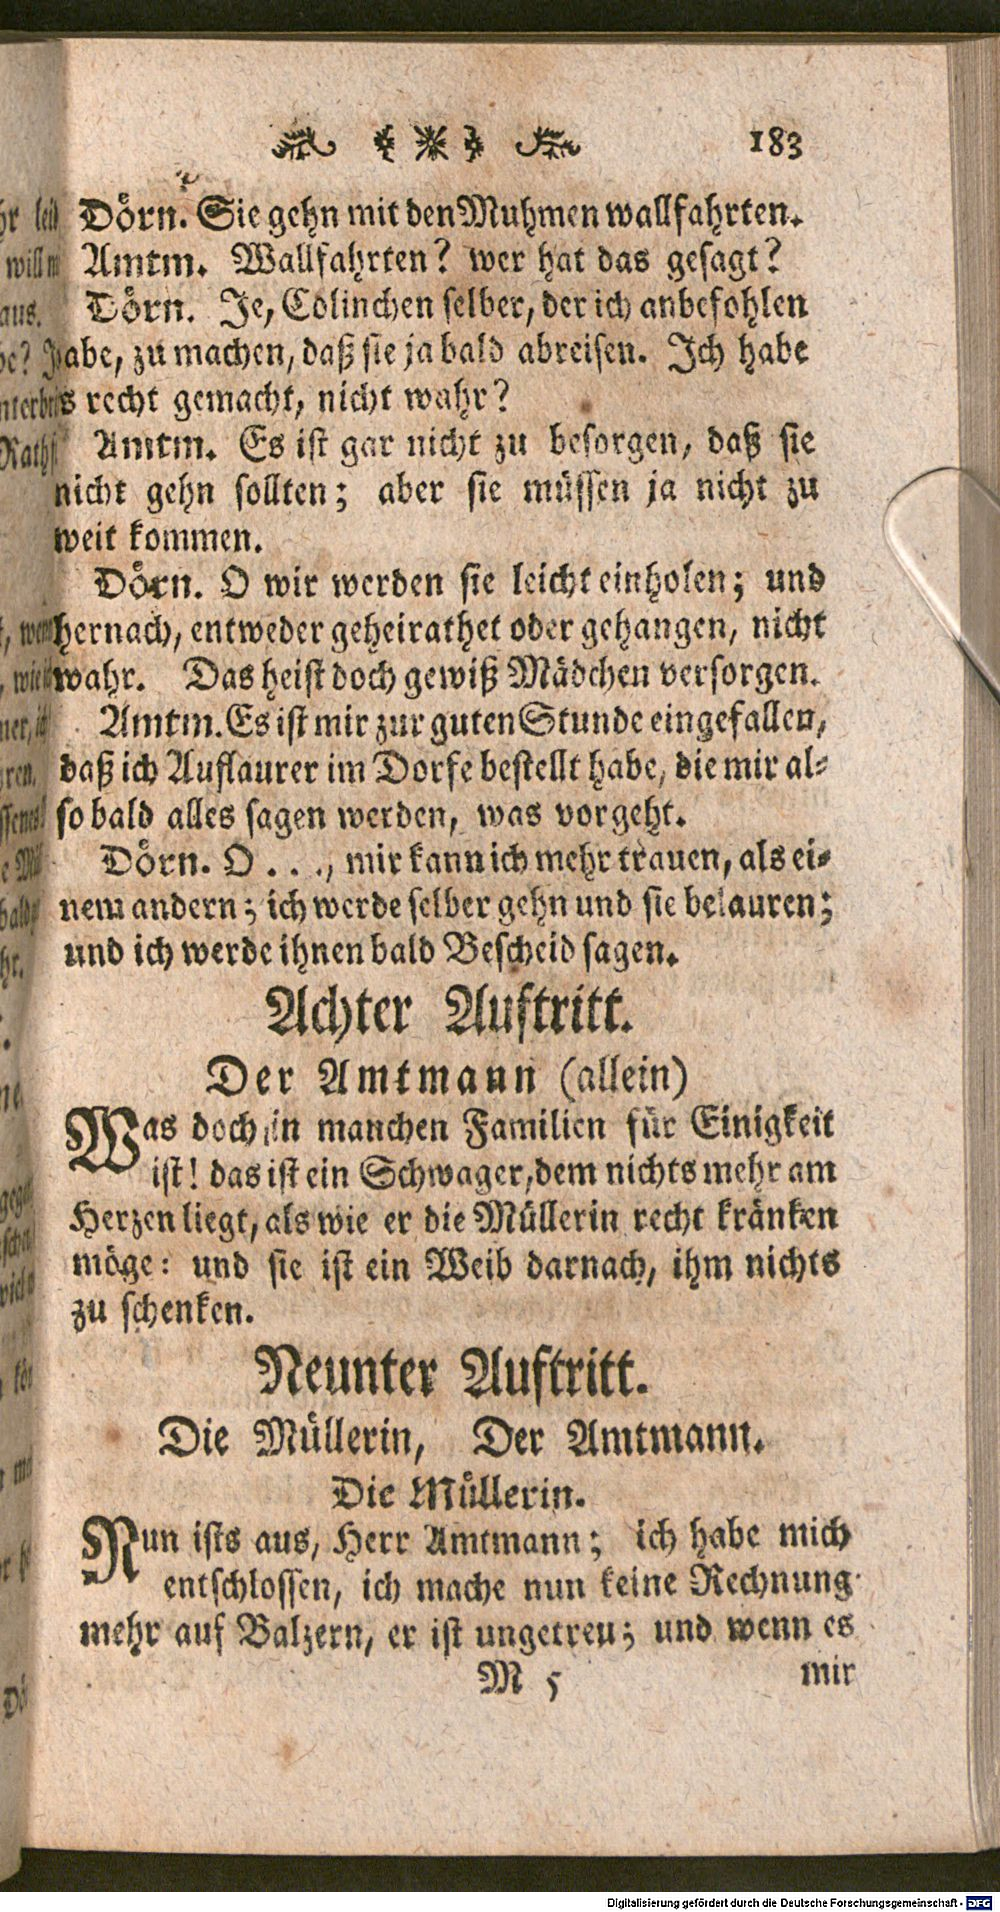 183
Dörn. Sie gehn mit den Muhmen wallfahrten.
Amtm. Wallfahrten? wer hat das gesagt?
Dörn. Je, Colinchen selber, der ich anbefohlen
habe, zu machen, daß sie ja bald abreisen. Ich habe
s recht gemacht, nicht wahr?
Amtm. Es ist gar nicht zu besorgen, daß sie
nicht gehn sollten; aber sie müssen ja nicht zu
weit kommen.
Dörn. O wir werden sie leicht einholen; und
hernach, entweder geheirathet oder gehangen, nicht
wahr. Das heist doch gewiß Mädchen versorgen.
Amtm. Es ist mir zur guten Stunde eingefallen,
daß ich Auflaurer im Dorfe bestellt habe, die mir al-
so bald alles sagen werden, was vorgeht.
Dörn. O . . ., mir kann ich mehr trauen, als ei-
nem andern; ich werde selber gehn und sie belauren;
und ich werde ihnen bald Bescheid sagen.
Achter Auftritt.
Der Amtmann (allein)
Was doch in manchen Familien für Einigkeit
ist! das ist ein Schwager, dem nichts mehr am
Herzen liegt, als wie er die Müllerin recht kränken
möge: und sie ist ein Weib darnach, ihm nichts
zu schenken.
Neunter Auftritt.
Die Müllerin, Der Amtmann.
Die Müllerin.
Nun ists aus, Herr Amtmann; ich habe mich
entschlossen, ich mache nun keine Rechnung
mehr auf Balzern, er ist ungetreu; und wenn es
M 5 mir
Digitalisierung gefördert durch die Deutsche Forschungsgemeinschaft - DFG